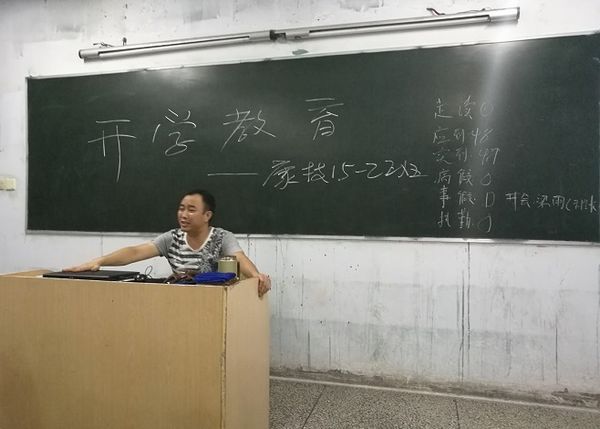 开学教育
——康技15-22班
走读 0
应到 48
实到 47
病假 0
事假 1 开会
执勤 0